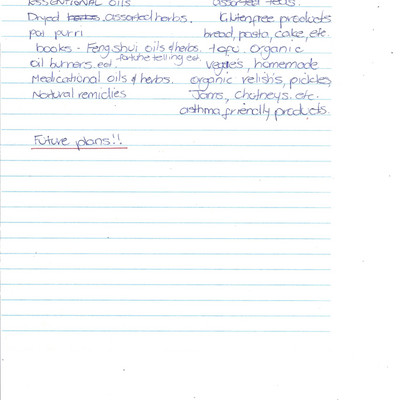 ESSENTIONAL OILS
assorted teas.
Dryed herbs, assorted herbs.
Glutenfree products
pot purri
bread, pasta, cake, etc.
books - Fengshui oils & herbs.
tofu. organic
fortune telling ect.
oil burners. ect.
vegie's, homemade
Medicational oils & herbs.
organic relish's, pickles,
Natural remidies
Jams, chutneys. etc.
asthma friendly products.
Future plans!!